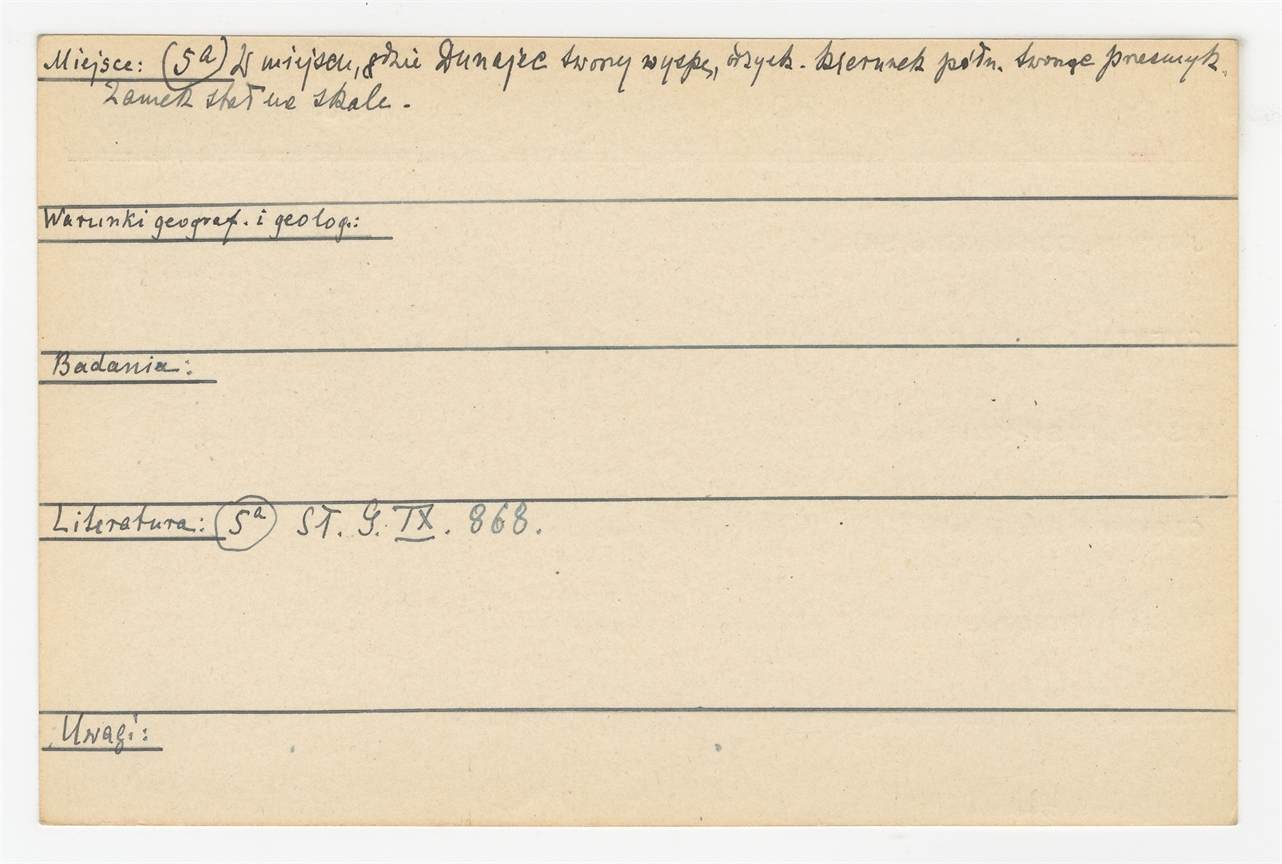 Miejsce: (5a) W miejscu, gdzie Dunajec tworzy wyspę, kierunek półn. tworząc przesmyk.
Zamek stał na skale.
Warunki geograf. i geolog.:
Badania:
Literatura: (5a) Sł. G. IX. 868.
Uwagi: